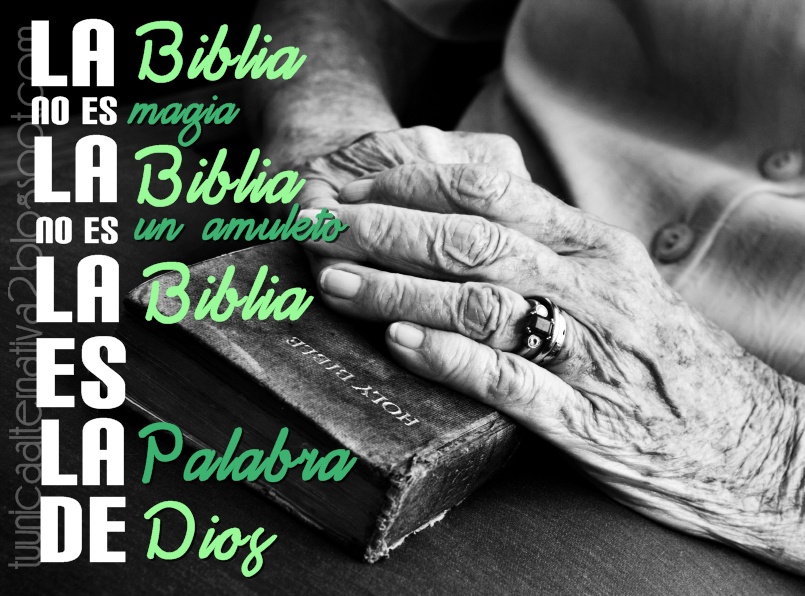 LA Biblia
NO ES magia
LA Biblia
NO ES un amuleto
LA Biblia
ES
LA Palabra
DE Dios
HOLY BIBLE
tuunicaalternativa2blogspot.com